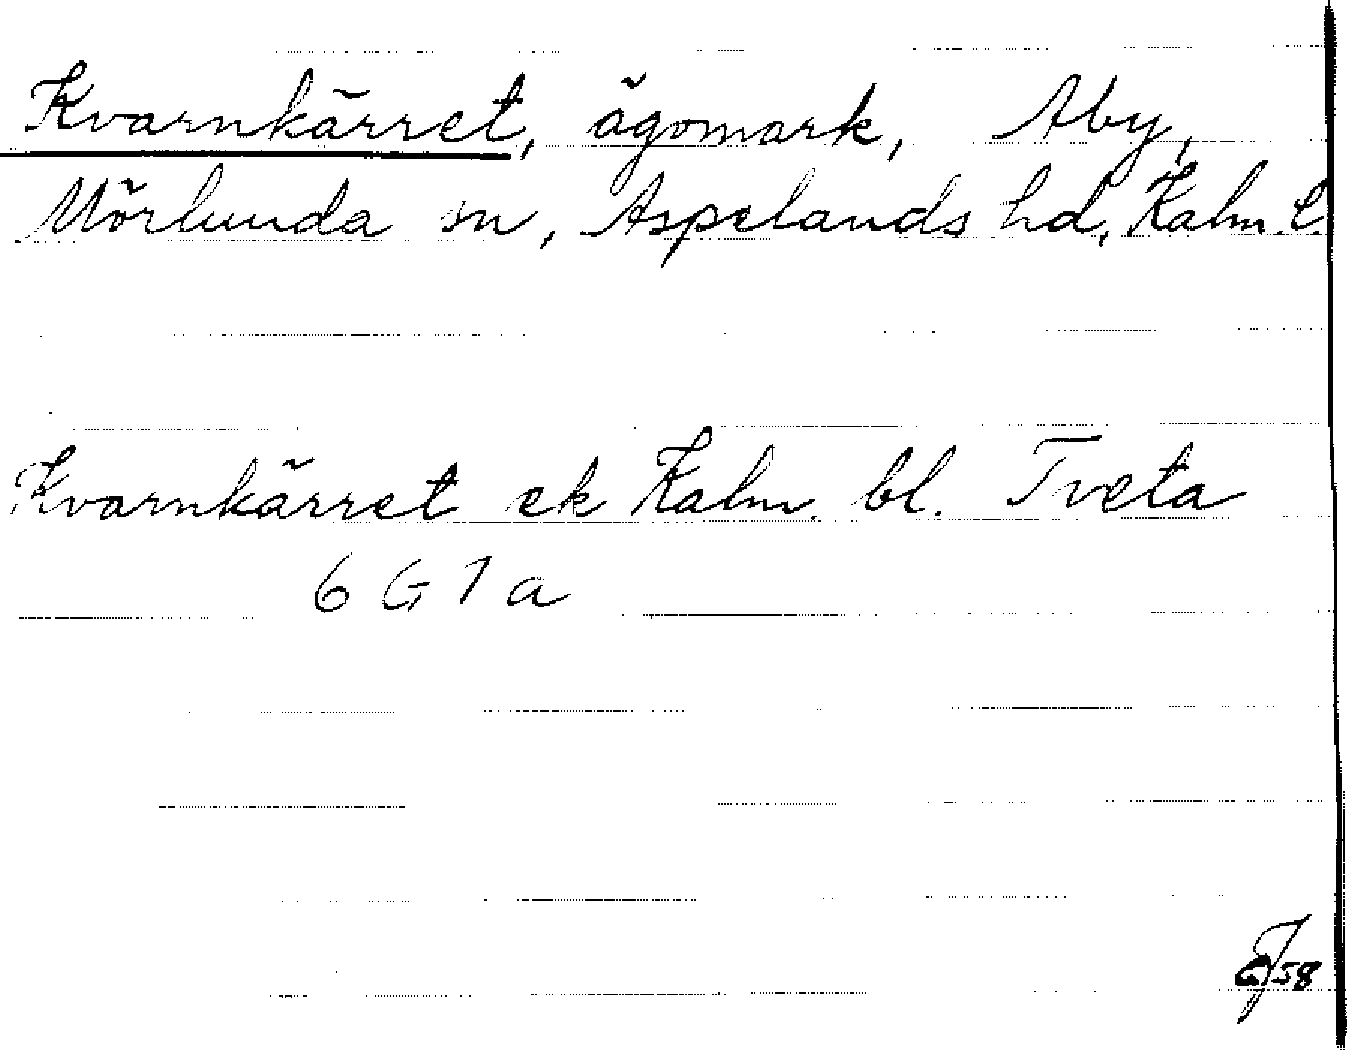 Kvarnkärret, ägomark, Åby,
Mörlunda sn, Aspelands hd, Kalm. l.
Kvarnkärret ek Kalm. bl. Tveta
6 G 1 a
58